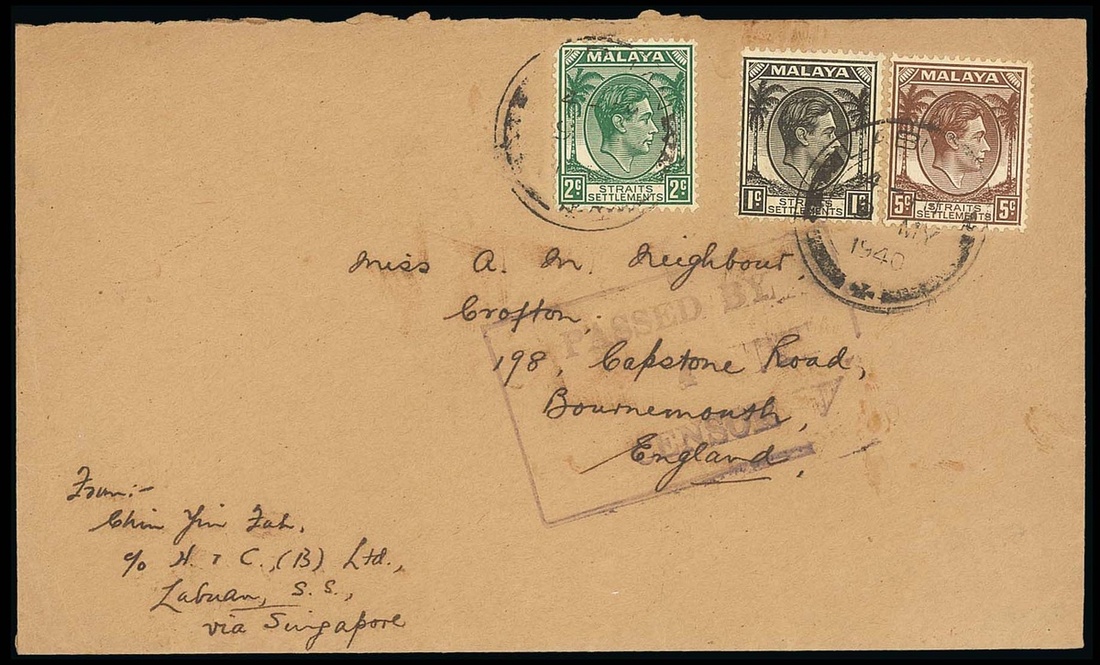 MALAYA
2c 2c
STRAITS
SETTLEMENTS
MALAYA
1c 1c
STRAITS
SETTLEMENTS
MALAYA
5c 5c
STRAITS
SETTLEMENTS
MY
1940
Miss A. M. Neighbour,
Crofton,
198, Capstone Road,
Bournemouth,
England,
PASSED BY
CENSOR
From:-
Chin Yin Fah,
c/o H. & C., (B) Ltd.,
Labuan, S. S.,
via Singapore